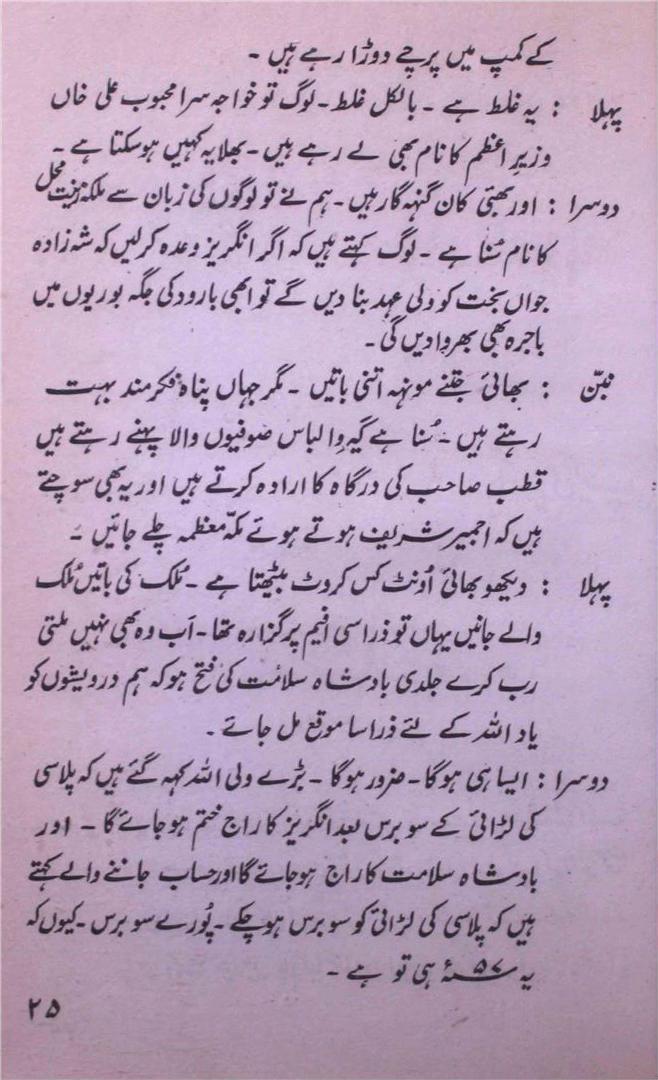 کے کمپ میں پرچے دوڑا رہے ہیں ۔
پہلا : یہ غلط ہے ۔ بالکل غلط ۔ لوگ تو خواجہ سرا محبوب علی خاں
وزیر اعظم کا نام بھی لے رہے ہیں ۔ بھلا یہ کہیں ہو سکتا ہے ۔
دوسرا : اور بھئی کان گنہہ گار ہیں ۔ ہم نے تو لوگوں کی زبان سے ملکہ زینت محل
کا نام سُنا ہے ۔ لوگ کہتے ہیں کہ اگر انگریز وعدہ کر لیں کہ شہ زادہ
جواں بخت کو ولی عہد بنا دیں گے تو ابھی بارود کی جگہ بوریوں میں
باجرہ بھی بھروا دیں گی ۔
نبّن : بھائی جتنے مونہہ اتنی باتیں ۔ مگر جہاں پناہ فکر مند بہت
رہتے ہیں ۔ سُنا ہے گیہوا لباس صوفیوں والا پہنے رہتے ہیں
قطب صاحب کی درگاہ کا ارادہ کرتے ہیں اور یہ بھی سوچتے
ہیں کہ اجمیر شریف ہوتے ہوئے مکّہ معظمہ چلے جائیں ۔
پہلا : دیکھو بھائی اُونٹ کس کروٹ بیٹھتا ہے ۔ مُلک کی باتیں مُلک
والے جانیں یہاں تو ذرا سی افیم پر گزارہ تھا ۔ اَب وہ بھی نہیں ملتی
رب کرے جلدی بادشاہ سلامت کی فتح ہو کہ ہم درویشوں کو
یاد اللہ کے لئے ذرا سا موقع مل جائے ۔
دوسرا : ایسا ہی ہوگا ۔ ضرور ہوگا ۔ بڑے ولی اللہ کہہ گئے ہیں کہ پلاسی
کی لڑائی کے سو برس بعد انگریز کا راج ختم ہو جائے گا ۔ اور
بادشاہ سلامت کا راج ہو جائے گا اور حساب جاننے والے کہتے
ہیں کہ پلاسی کی لڑائی کو سو برس ہو چکے ۔ پُورے سو برس ۔ کیوں کہ
یہ ۵۷ء ہی تو ہے ۔
۲۵